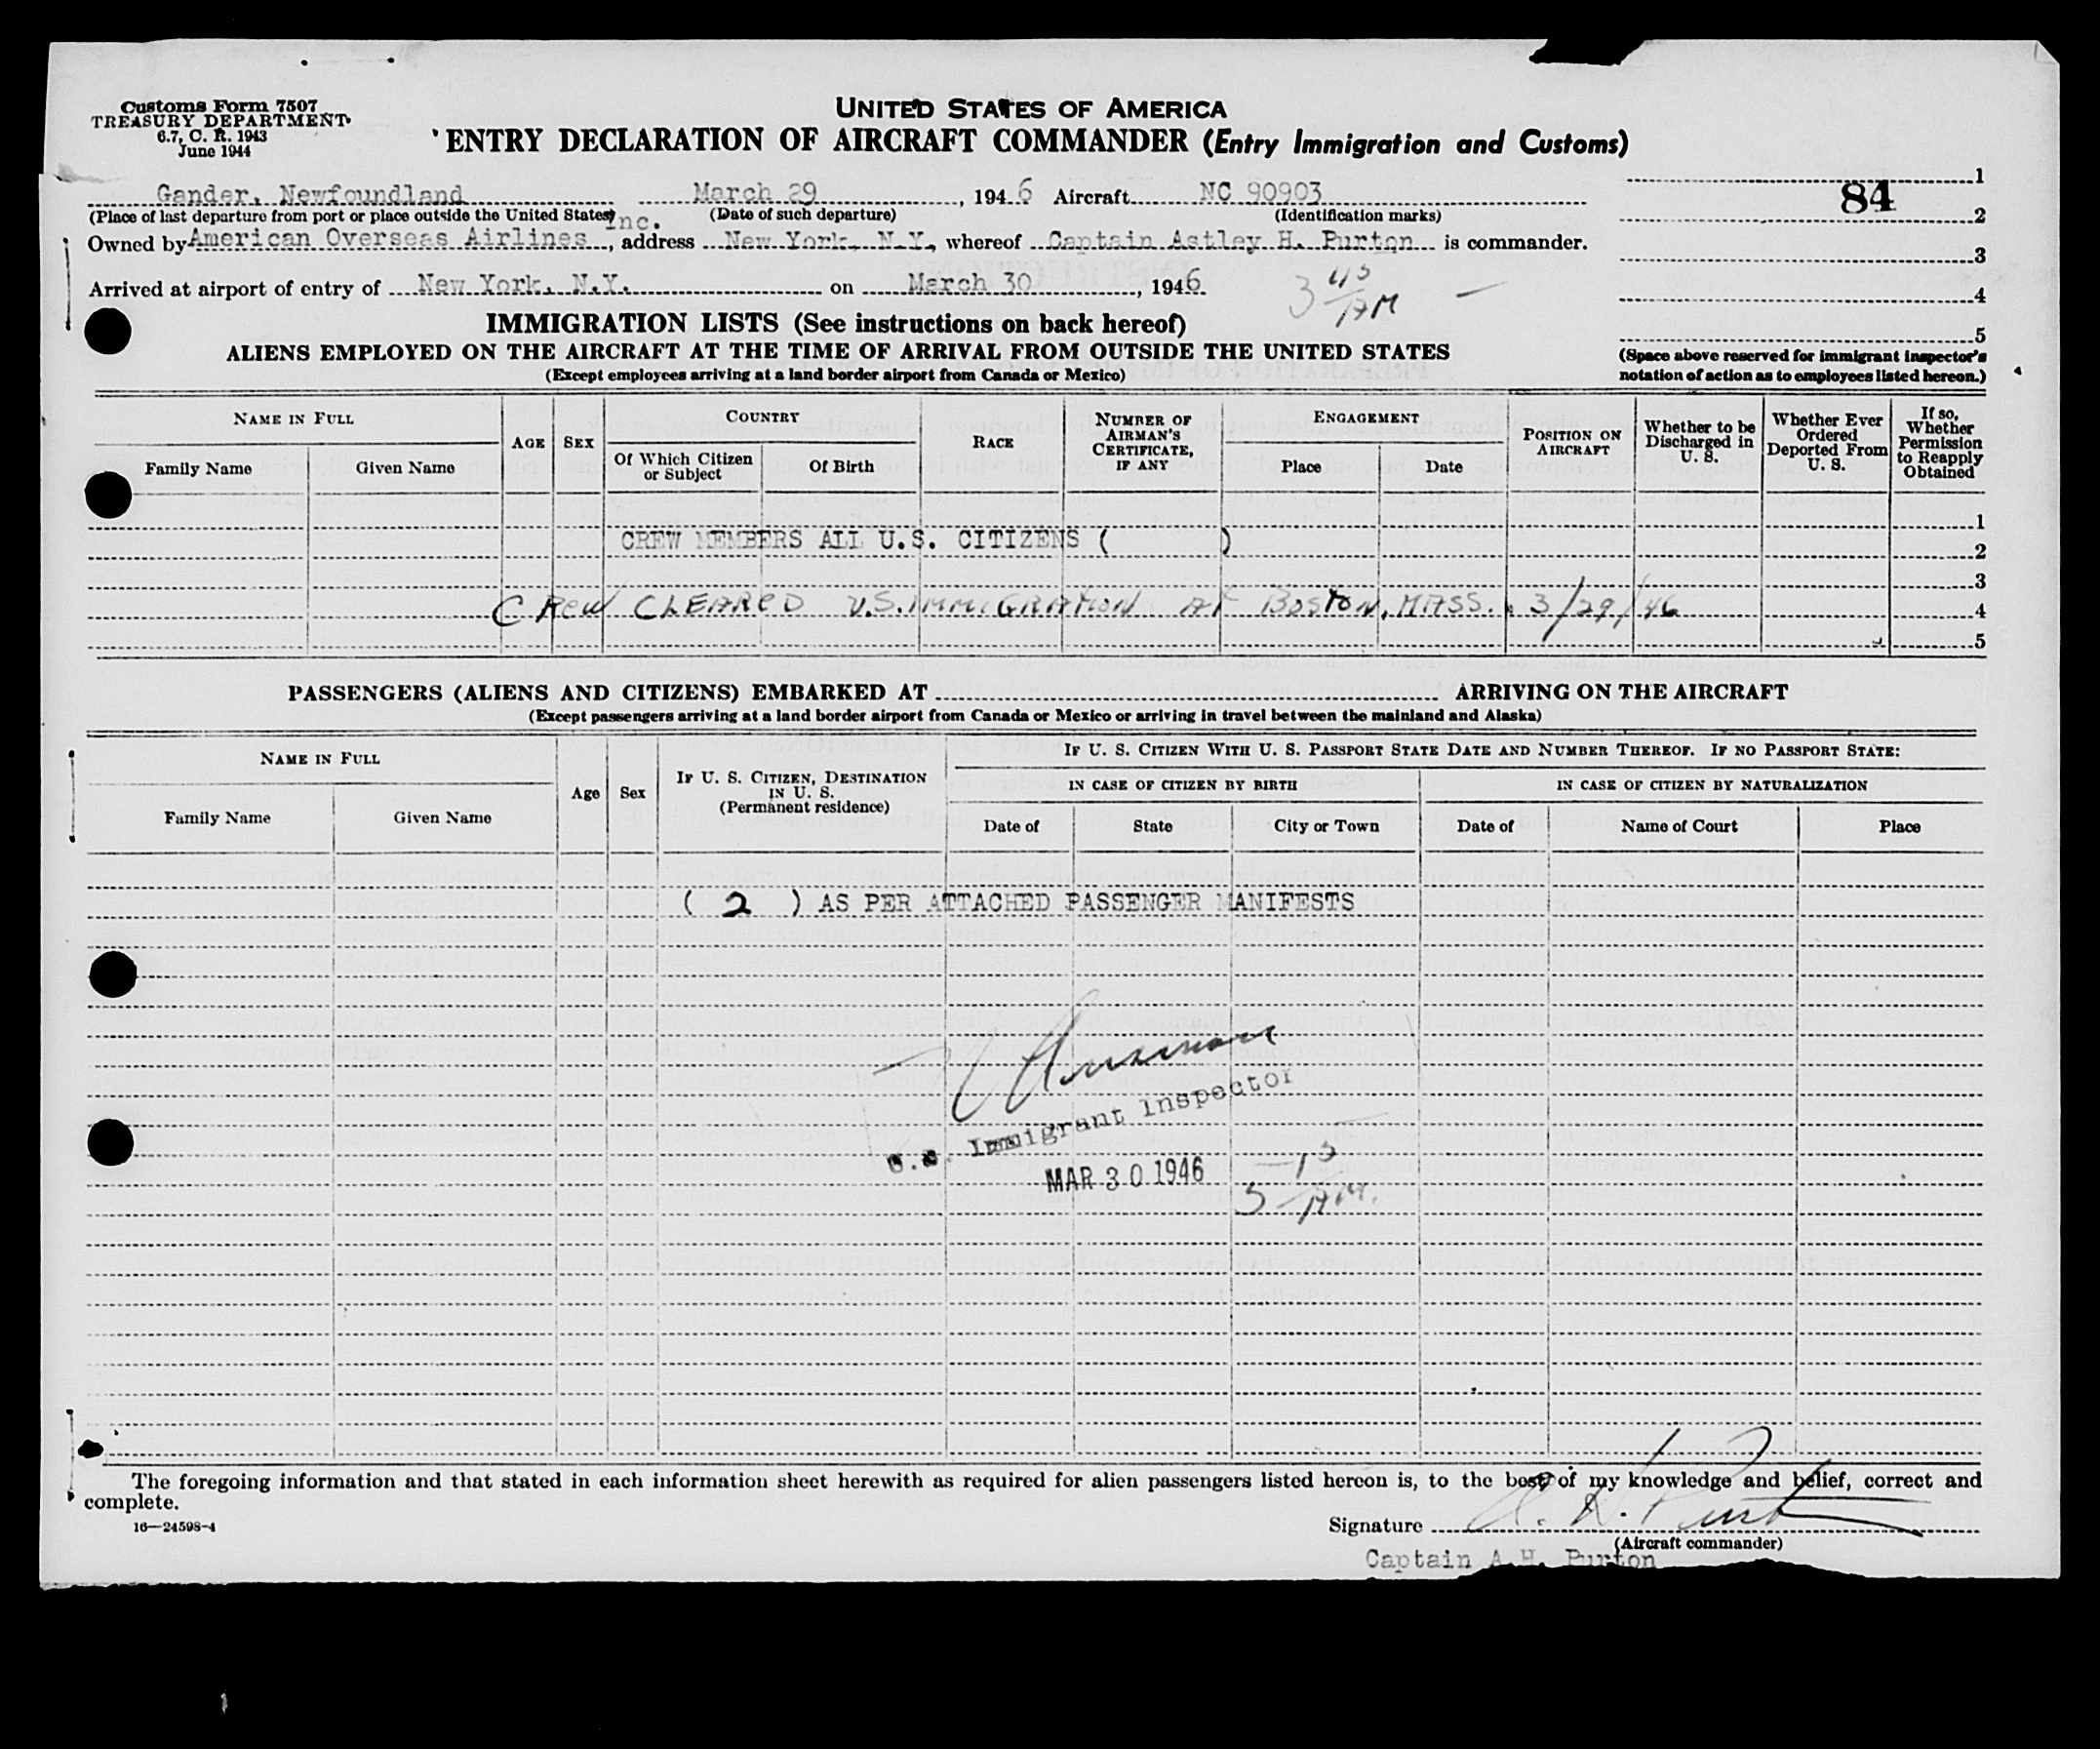 Customs Form 7507
TREASURY DEPARTMENT
6.7, C. R. 1943
June 1944
UNITED STATES OF AMERICA
ENTRY DECLARATION OF AIRCRAFT COMMANDER (Entry Immigration and Customs)
Gander, Newfoundland March 29, 1946 Aircraft NC 90903
(Place of last departure from port or place outside the United States) (Date of such departure) (Identification marks)
Inc.
Owned by American Overseas Airlines, address New York, N.Y., whereof Captain Astley H. Purton is commander.
Arrived at airport of entry of New York, N.Y. on March 30, 1946
3 45 AM
1
84
2
3
4
5
(Space above reserved for immigrant inspector's
notation of action as to employees listed hereon.)
IMMIGRATION LISTS (See instructions on back hereof)
ALIENS EMPLOYED ON THE AIRCRAFT AT THE TIME OF ARRIVAL FROM OUTSIDE THE UNITED STATES
(Except employees arriving at a land border airport from Canada or Mexico)
NAME IN FULL
Family Name
Given Name
AGE
SEX
COUNTRY
Of Which Citizen
or Subject
Of Birth
RACE
NUMBER OF
AIRMAN'S
CERTIFICATE,
IF ANY
ENGAGEMENT
Place
Date
POSITION ON
AIRCRAFT
Whether to be
Discharged in
U. S.
Whether Ever
Ordered
Deported From
U. S.
If so,
Whether
Permission
to Reapply
Obtained
1
CREW MEMBERS ALL U.S. CITIZENS ( )
2
3
CREW CLEARED U.S. IMMIGRATION AT BOSTON, MASS. 3/29/46
4
5
PASSENGERS (ALIENS AND CITIZENS) EMBARKED AT ARRIVING ON THE AIRCRAFT
(Except passengers arriving at a land border airport from Canada or Mexico or arriving in travel between the mainland and Alaska)
NAME IN FULL
Family Name
Given Name
Age
Sex
IF U. S. CITIZEN, DESTINATION
IN U. S.
(Permanent residence)
IF U. S. CITIZEN WITH U. S. PASSPORT STATE DATE AND NUMBER THEREOF. IF NO PASSPORT STATE:
IN CASE OF CITIZEN BY BIRTH
IN CASE OF CITIZEN BY NATURALIZATION
Date of
State
City or Town
Date of
Name of Court
Place
( 2 ) AS PER ATTACHED PASSENGER MANIFESTS
U.S. Immigrant Inspector
MAR 30 1946
5 15 AM.
The foregoing information and that stated in each information sheet herewith as required for alien passengers listed hereon is, to the best of my knowledge and belief, correct and
complete.
16—24598-4
Signature A. H. Purton
(Aircraft commander)
Captain A.H. Purton